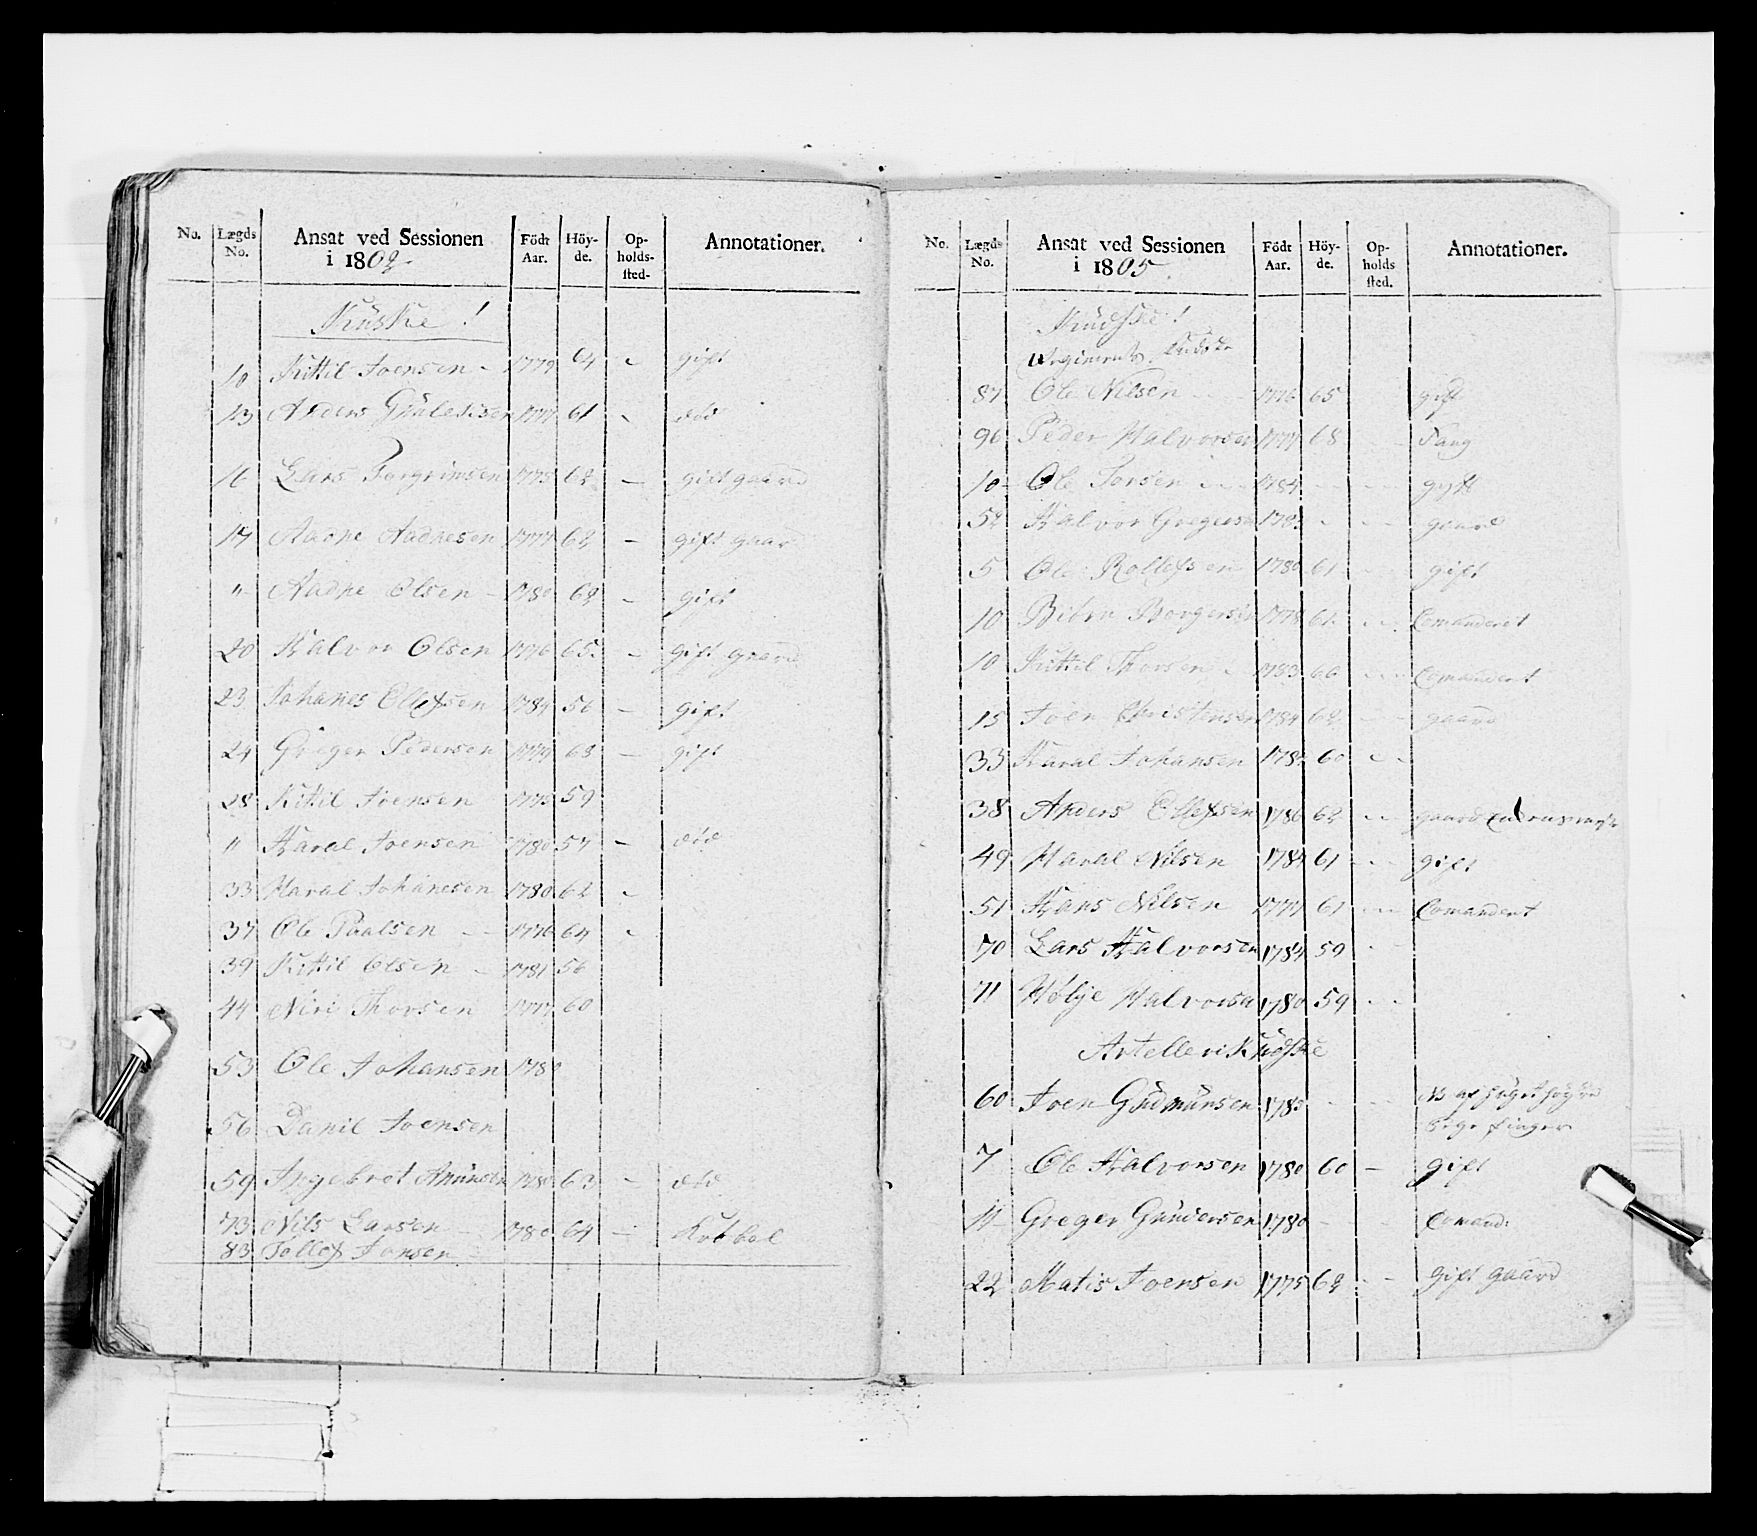 No. Lægds No. Ansat ved Sessionen i 1802. Födt Aar. Höy-de. Op-holds-sted- Annotationer.
Kuske!
10 Kittil Joensen 1779 64 - gift
13 Anders 1777 61 - død
16 Lars Torgrimsen 1775 62 - gift gaard
17 Aadne Aadnesen 1777 62 - gift gaard
" Aadne Olsen - 1780 62 - gift
20 Halvor Olsen 1776 65. - gift gaard
23 Johanes Ollefsen 1784 56 - gift
24 Greger Pedersen 1779 63 - gift
28 Kittil Joensen 1775 59
" Haral Joensen 1780 57 - død
33 Haral Johanesen 1780 62 -
37 Ole Paalsen - - 1776 64 -
39 Kittil Olsen - 1781 56
44 Niri Thorsen 1777 60
53 Ole Johansen 1780
56 Danil Joensen
59 Ingebret Amunsen 1780 63 - død
73 Nils Larsen - 1780 64 - Kobbel
83 Tollef Jonsen
No. Lægds No. Ansat ved Sessionen i 1805. Födt Aar. Höy-de. Op-holds sted. Annotationer.
Kudske!
Regiments Kudske
87 Ole Nilsen - - 1776 65 gift
96 Peder Halvorsen 1777 68 - -
10 Ole Torsen - - - 1784 - - - gift
52 Halvor Gregersen - - - gaard
5 Ole Rollefsen 1780 61 - - gift
10 Borgersen 1778 61. - - Comanderet
10 Kittil Thorsen - 1783 60 - - - Comanderet
15 Joen Christensen 1784 62 - - gaard
33 Haral Johansen 1782 60 - -
38 Anders Ollefsen 1786 62 - - gaard
49 Haral Nilsen 1784 61 - - - gift
51 Hans Nilsen 1777 61 - - - Comandert
70 Lars Halvorsen 1784 59 - -
71 Hølje Halvorsen 1780 59 - -
Artelleri Kudske
60 Joen Gudmunsen 1785 - - finger
7 Ole Halvorsen 1780 60 - gift
11 Greger Gundersen 1780 - - Comand:
22 Matis Joensen 1775 62 - - gift gaard